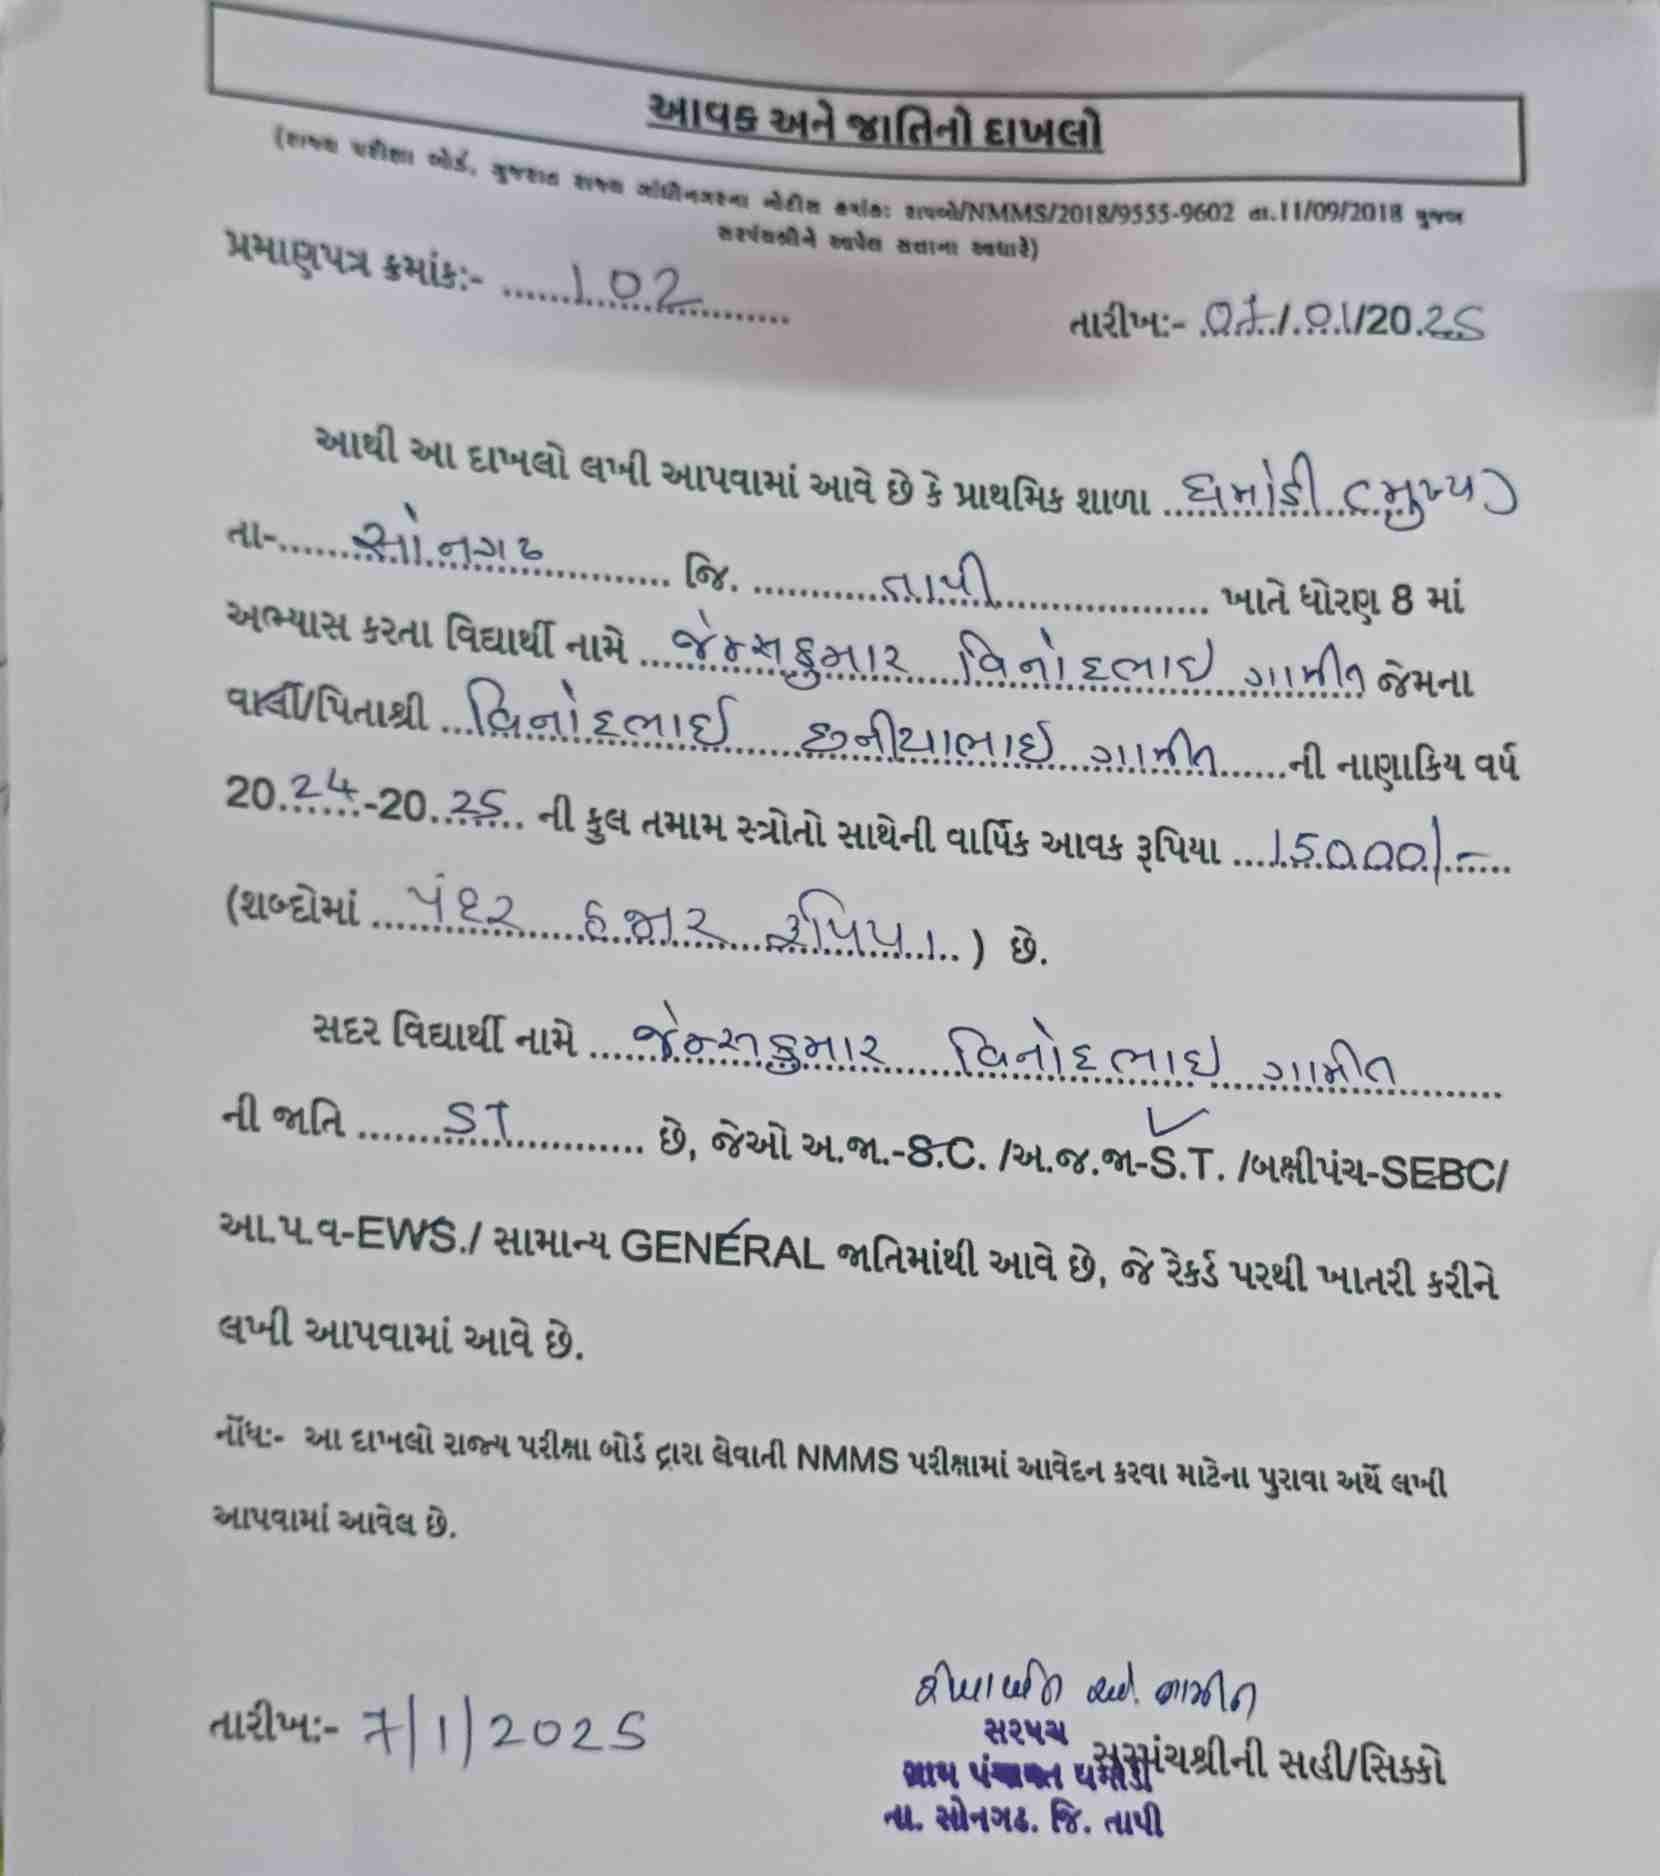 આવક અને જાતિનો દાખલો
(રાજ્ય પરીક્ષા બોર્ડ, ગુજરાત રાજ્ય ગાંધીનગરના નોટીસ ક્રમાંક: રાપબો/NMMS/2018/9555-9602 તા.11/09/2018 મુજબ
સરપંચશ્રીને આપેલ સત્તાના આધારે)
પ્રમાણપત્ર ક્રમાંક:- ......102......
તારીખ:- 07/01/2025
આથી આ દાખલો લખી આપવામાં આવે છે કે પ્રાથમિક શાળા ઘમોડી (મુખ્ય)
તા-......સોનગઢ...... જિ. ......તાપી...... ખાતે ધોરણ 8 માં
અભ્યાસ કરતા વિદ્યાર્થી નામે જેમ્સકુમાર વિનોદભાઇ ગામીત જેમના
વાલી/પિતાશ્રી ...વિનોદભાઈ છનીયાભાઇ ગામીત......ની નાણાકિય વર્ષ
20.24-20.25 ની કુલ તમામ સ્ત્રોતો સાથેની વાર્ષિક આવક રૂપિયા ...15000/-...
(શબ્દોમાં ...પંદર હજાર રૂપિયા...) છે.
સદર વિદ્યાર્થી નામે ...જેમ્સકુમાર વિનોદભાઇ ગામીત...
ની જાતિ ......ST...... છે, જેઓ અ.જા.-S.C. /અ.જ.જા-S.T. /બક્ષીપંચ-SEBC/
આ.પ.વ-EWS./ સામાન્ય GENERAL જાતિમાંથી આવે છે, જે રેકર્ડ પરથી ખાતરી કરીને
લખી આપવામાં આવે છે.
નોંધ:- આ દાખલો રાજ્ય પરીક્ષા બોર્ડ દ્વારા લેવાતી NMMS પરીક્ષામાં આવેદન કરવા માટેના પુરાવા અર્થે લખી
આપવામાં આવેલ છે.
તારીખ:- 7/1/2025
ગામીત
સરપંચ
સરપંચશ્રીની સહી/સિક્કો
ગ્રામ પંચાયત ઘમોડી
તા. સોનગઢ. જિ. તાપી